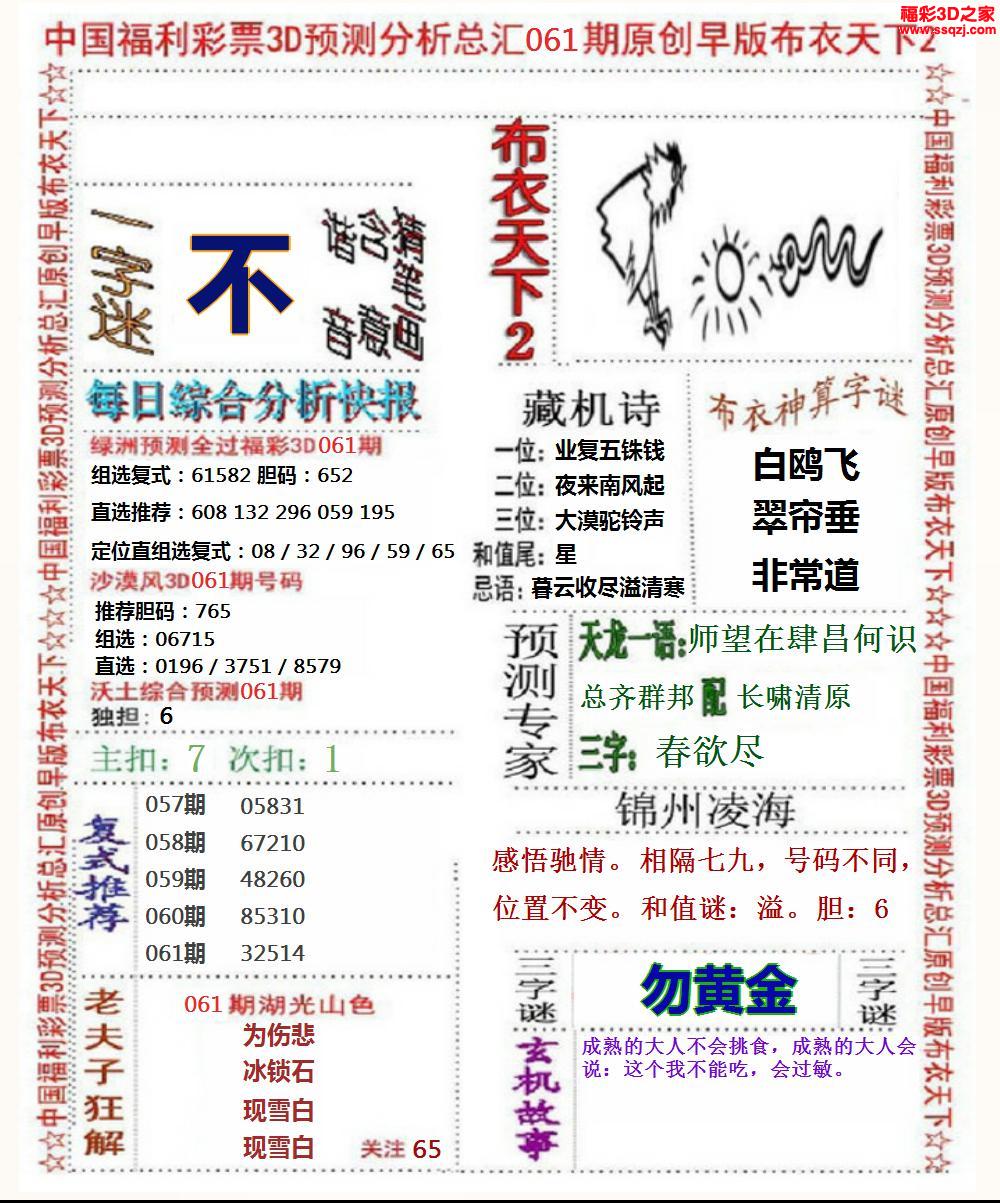 福彩3D之家
www.ssqzj.com
中国福利彩票3D预测分析总汇061期原创早版布衣天下2
☆☆中国福利彩票3D预测分析总汇原创早版布衣天下☆☆中国福利彩票3D预测分析总汇原创早版布衣天下☆☆
一字迷
不
拆笔画
含意
谐音
每日综合分析快报
绿洲预测全过福彩3D061期
组选复式：61582 胆码：652
直选推荐：608 132 296 059 195
定位直组选复式：08 / 32 / 96 / 59 / 65
沙漠风3D061期号码
推荐胆码：765
组选：06715
直选：0196 / 3751 / 8579
沃土综合预测061期
独担：6
主扣：7 次扣：1
复式推荐
057期 05831
058期 67210
059期 48260
060期 85310
061期 32514
老夫子狂解
061期湖光山色
为伤悲
冰锁石
现雪白
现雪白 关注 65
布衣天下2
藏机诗
一位：业复五铢钱
二位：夜来南风起
三位：大漠驼铃声
和值尾：星
忌语：暮云收尽溢清寒
布衣神算字谜
白鸥飞
翠帘垂
非常道
预测专家
天龙一语:师望在肆昌何识
总齐群邦 配 长啸清原
三字：春欲尽
锦州凌海
感悟驰情。相隔七九，号码不同，
位置不变。和值谜：溢。胆：6
三字谜
勿黄金
三字谜
玄机故事
成熟的大人不会挑食，成熟的大人会
说：这个我不能吃，会过敏。
☆☆中国福利彩票3D预测分析总汇原创早版布衣天下☆☆中国福利彩票3D预测分析总汇原创早版布衣天下☆☆